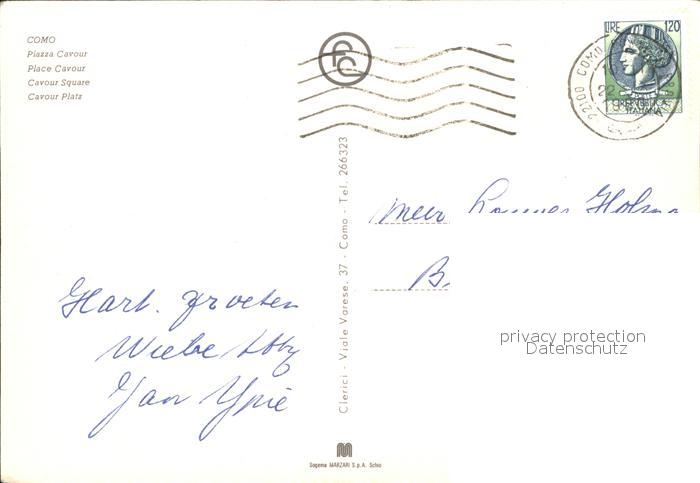 COMO
Piazza Cavour
Place Cavour
Cavour Square
Cavour Platz
LIRE 120
REPUBBLICA
ITALIANA
22100 COMO
22
Clerici - Viale Varese, 37 - Como - Tel. 266323
B.
Hart. groeten
Wiebe
Jan Ypie
privacy protection
Datenschutz
M
Sogema MARZARI S.p.A. Schio